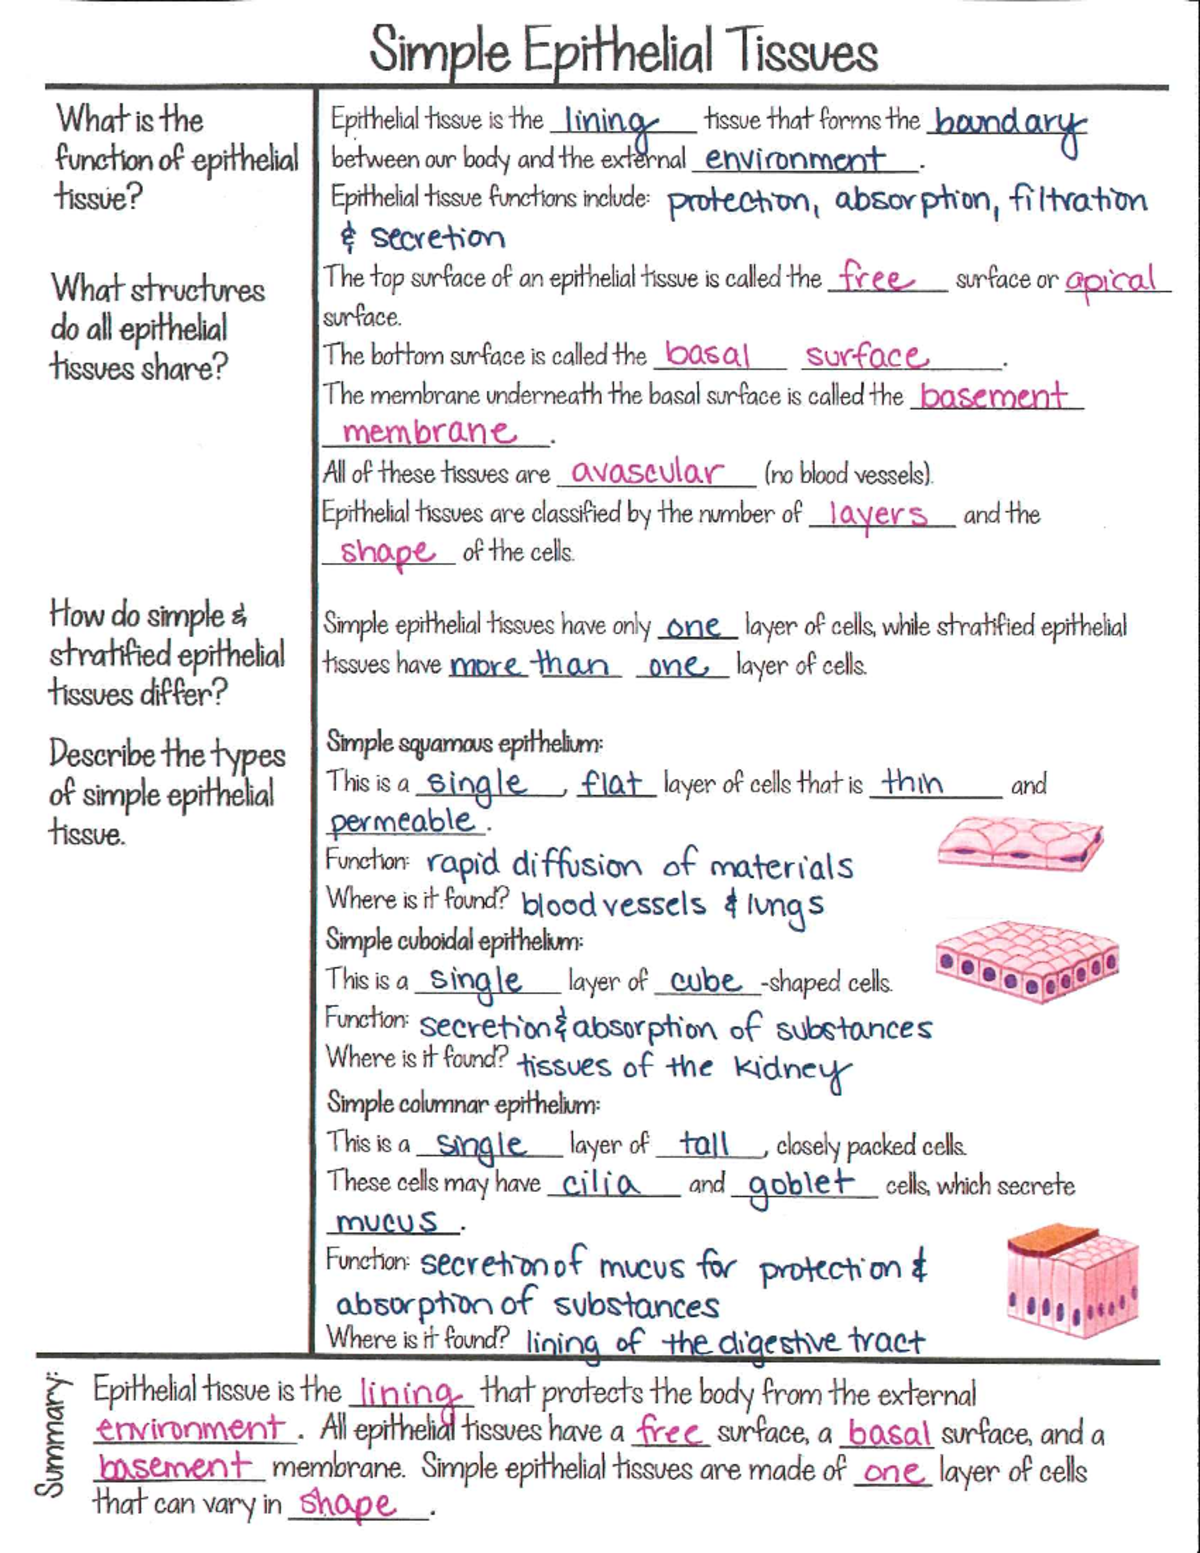 Simple Epithelial Tissues
What is the
function of epithelial
tissue?
Epithelial tissue is the lining tissue that forms the boundary
between our body and the external environment.
Epithelial tissue functions include: protection, absorption, filtration
& secretion
What structures
do all epithelial
tissues share?
The top surface of an epithelial tissue is called the free surface or apical
surface.
The bottom surface is called the basal surface.
The membrane underneath the basal surface is called the basement
membrane.
All of these tissues are avascular (no blood vessels).
Epithelial tissues are classified by the number of layers and the
shape of the cells.
How do simple &
stratified epithelial
tissues differ?
Simple epithelial tissues have only one layer of cells, while stratified epithelial
tissues have more than one layer of cells.
Describe the types
of simple epithelial
tissue.
Simple squamous epithelium:
This is a single, flat layer of cells that is thin and
permeable.
Function: rapid diffusion of materials
Where is it found? blood vessels & lungs
Simple cuboidal epithelium:
This is a single layer of cube-shaped cells.
Function: secretion & absorption of substances
Where is it found? tissues of the kidney
Simple columnar epithelium:
This is a single layer of tall, closely packed cells.
These cells may have cilia and goblet cells, which secrete
mucus.
Function: secretion of mucus for protection &
absorption of substances
Where is it found? lining of the digestive tract
Summary:
Epithelial tissue is the lining that protects the body from the external
environment. All epithelial tissues have a free surface, a basal surface, and a
basement membrane. Simple epithelial tissues are made of one layer of cells
that can vary in shape.